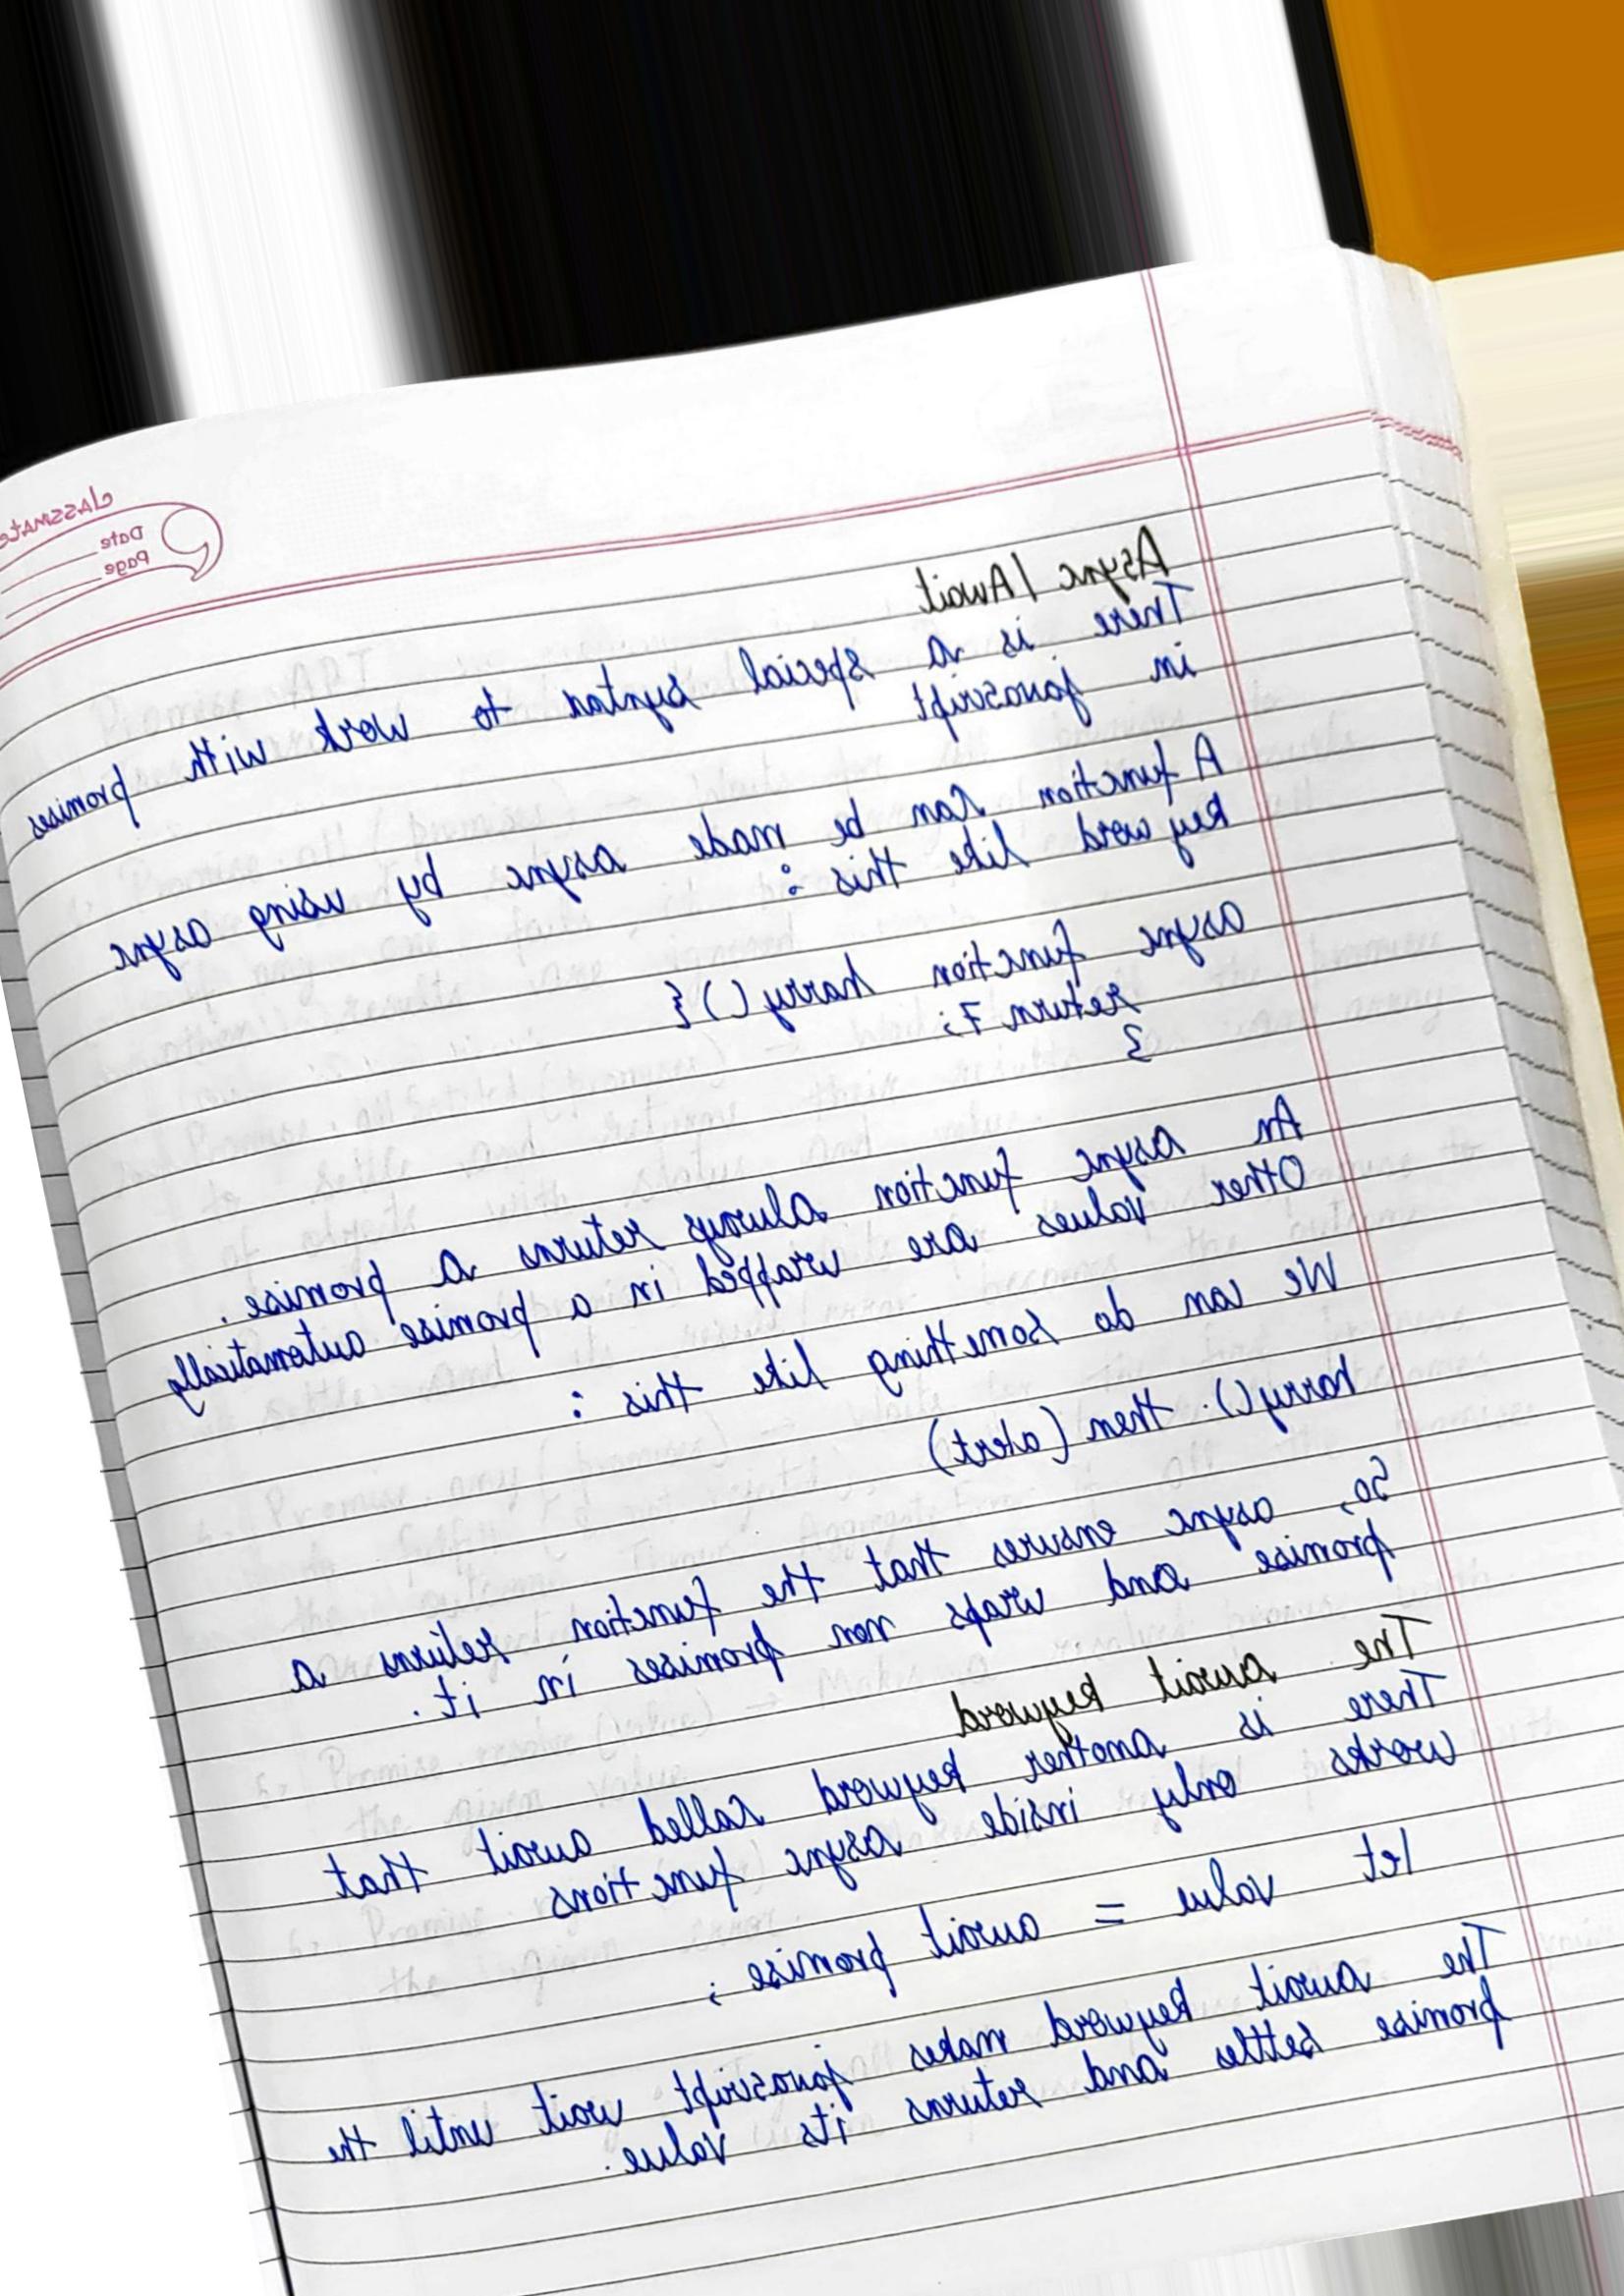 classmate
Date
Page
Async / Await
There is a special syntax to work with promises
in javascript
A function can be made async by using async
key word like this :
async function harry ( ) {
return 7;
}
An async function always returns a promise.
Other values are wrapped in a promise automatically
We can do something like this :
harry(). then (alert)
So, async ensures that the function returns a
promise and wraps non promises in it.
The await keyword
There is another keyword called await that
works only inside async functions
let value = await promise ;
The await keyword makes javascript wait until the
promise settles and returns its value.